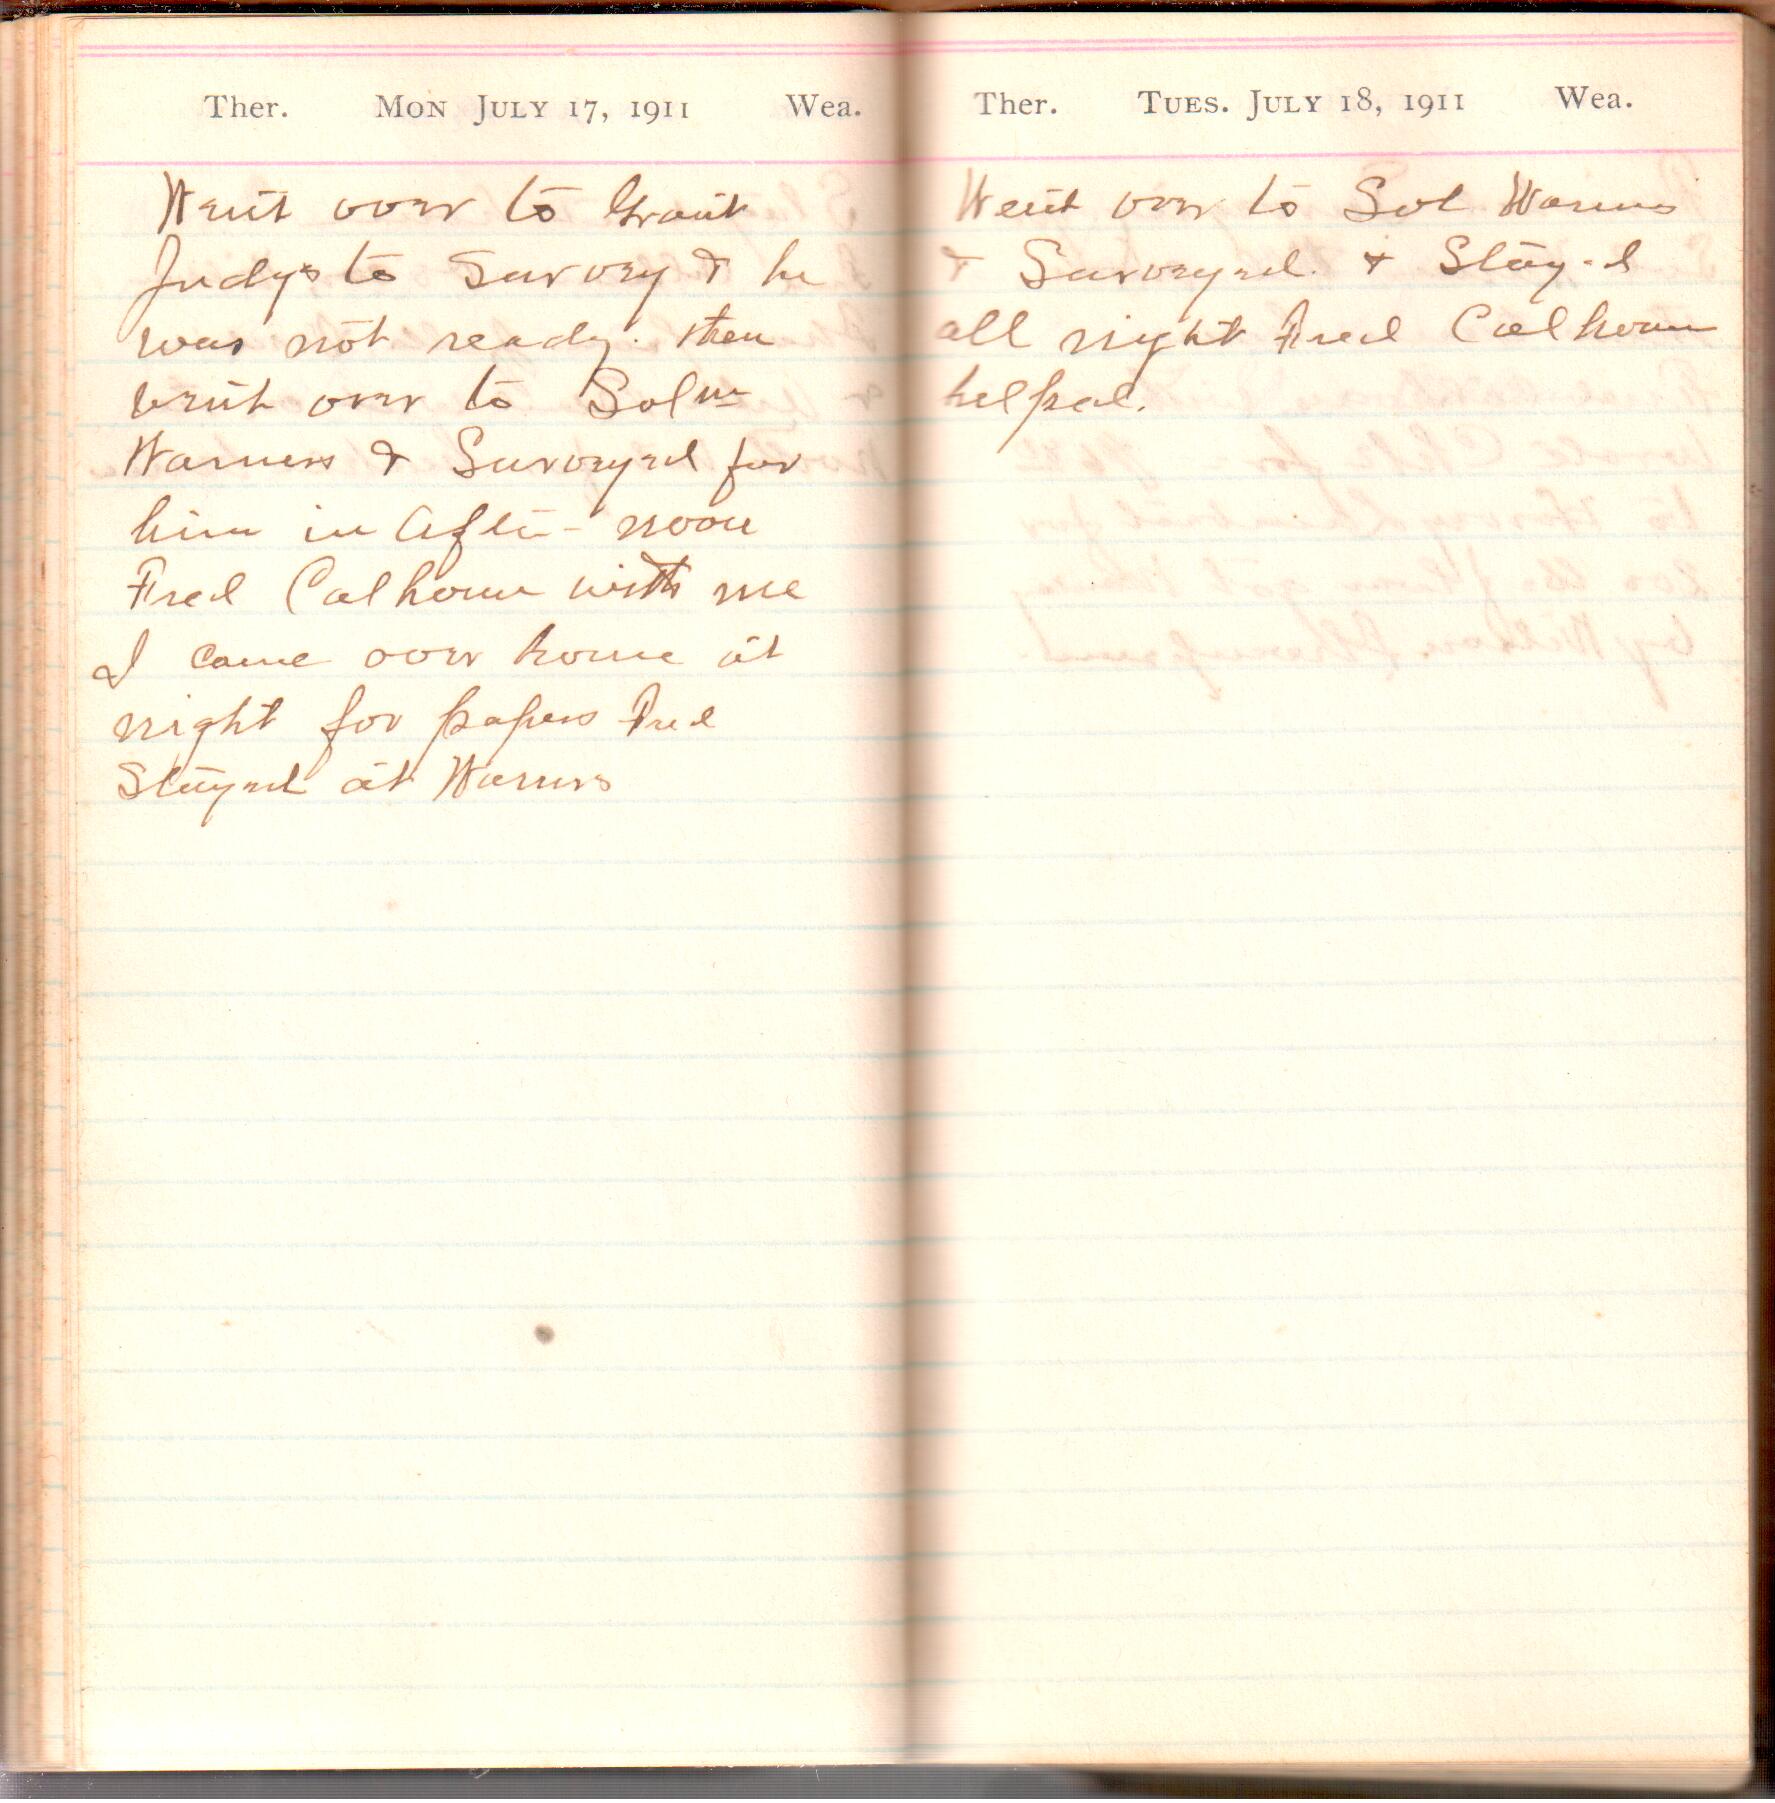 Ther. MON JULY 17, 1911 Wea.
Went over to Grant
Judys to Survey & he
was not ready. then
went over to Solm
Warners & Surveyed for
him in After-noon
Fred Calhoun with me
I came over home at
night for papers Fred
Stayed at Warners
Ther. TUES. JULY 18, 1911 Wea.
Went over to Sol Warners
& Surveyed. & Stay-d
all night Fred Calhoun
helped.